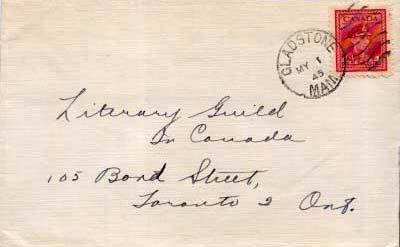 CANADA
GLADSTONE
MY 1
45
MAN.
Literary Guild
In Canada
105 Bond Street,
Toronto 2 Ont.